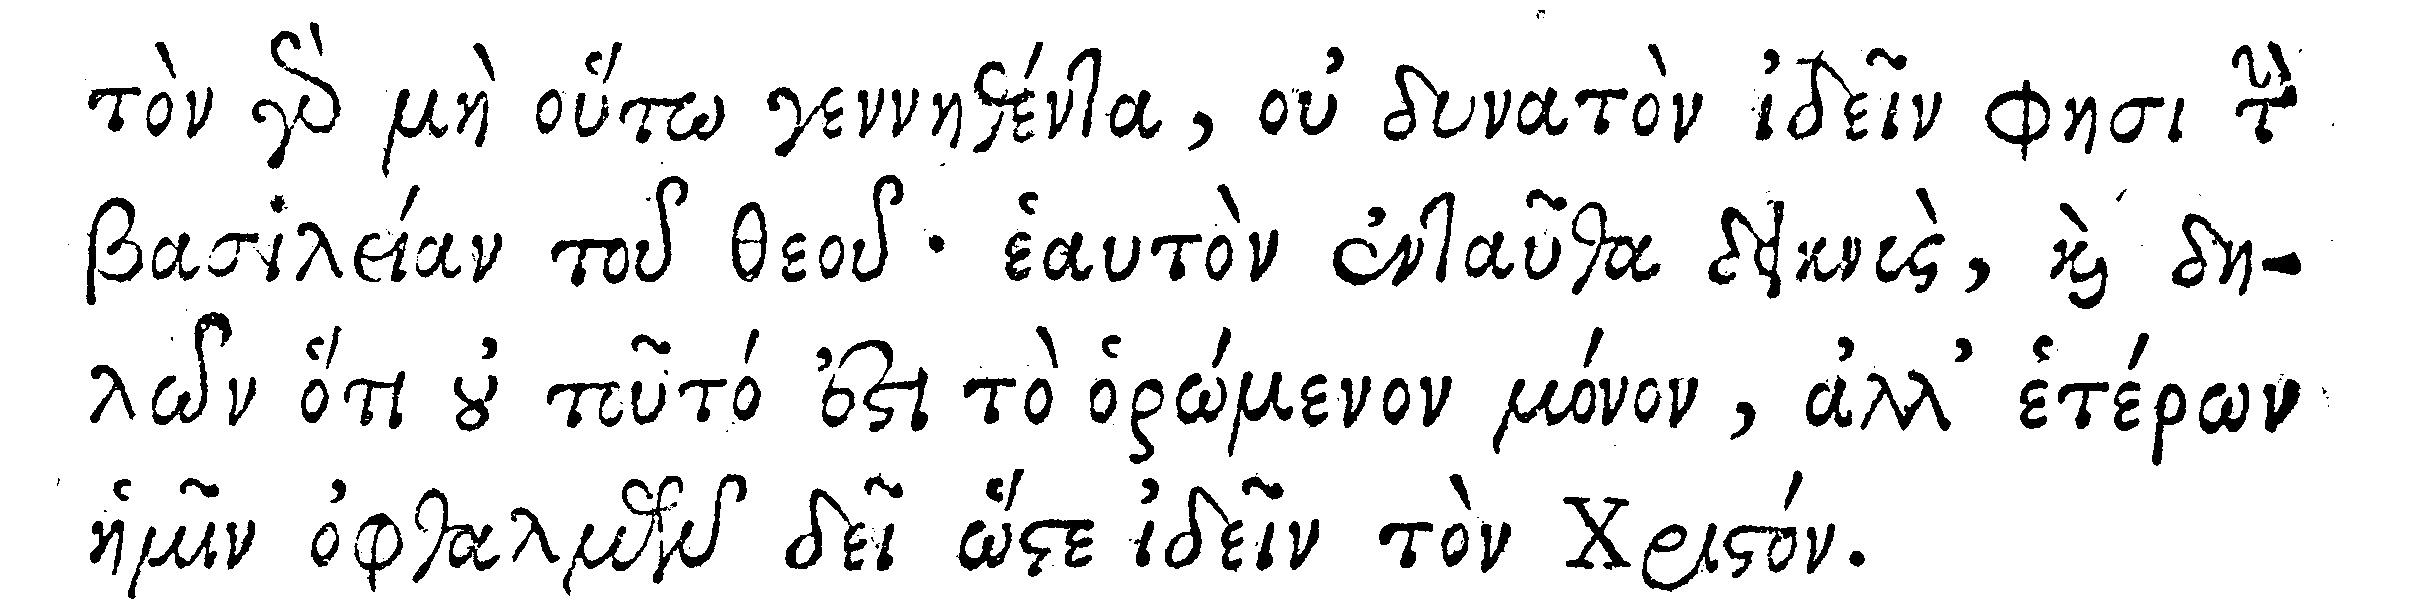 τὸν γὰρ μὴ οὕτω γεννηθέντα, οὐ δυνατὸν ἰδεῖν φησι τὴν
βασιλείαν τοῦ θεοῦ· ἑαυτὸν ἐνταῦθα δεικνὺς, καὶ δη-
λῶν ὅτι οὐ τοῦτό ἐστι τὸ ὁρώμενον μόνον, ἀλλ' ἑτέρων
ἡμῖν ὀφθαλμῶν δεῖ ὥστε ἰδεῖν τὸν Χριστόν.